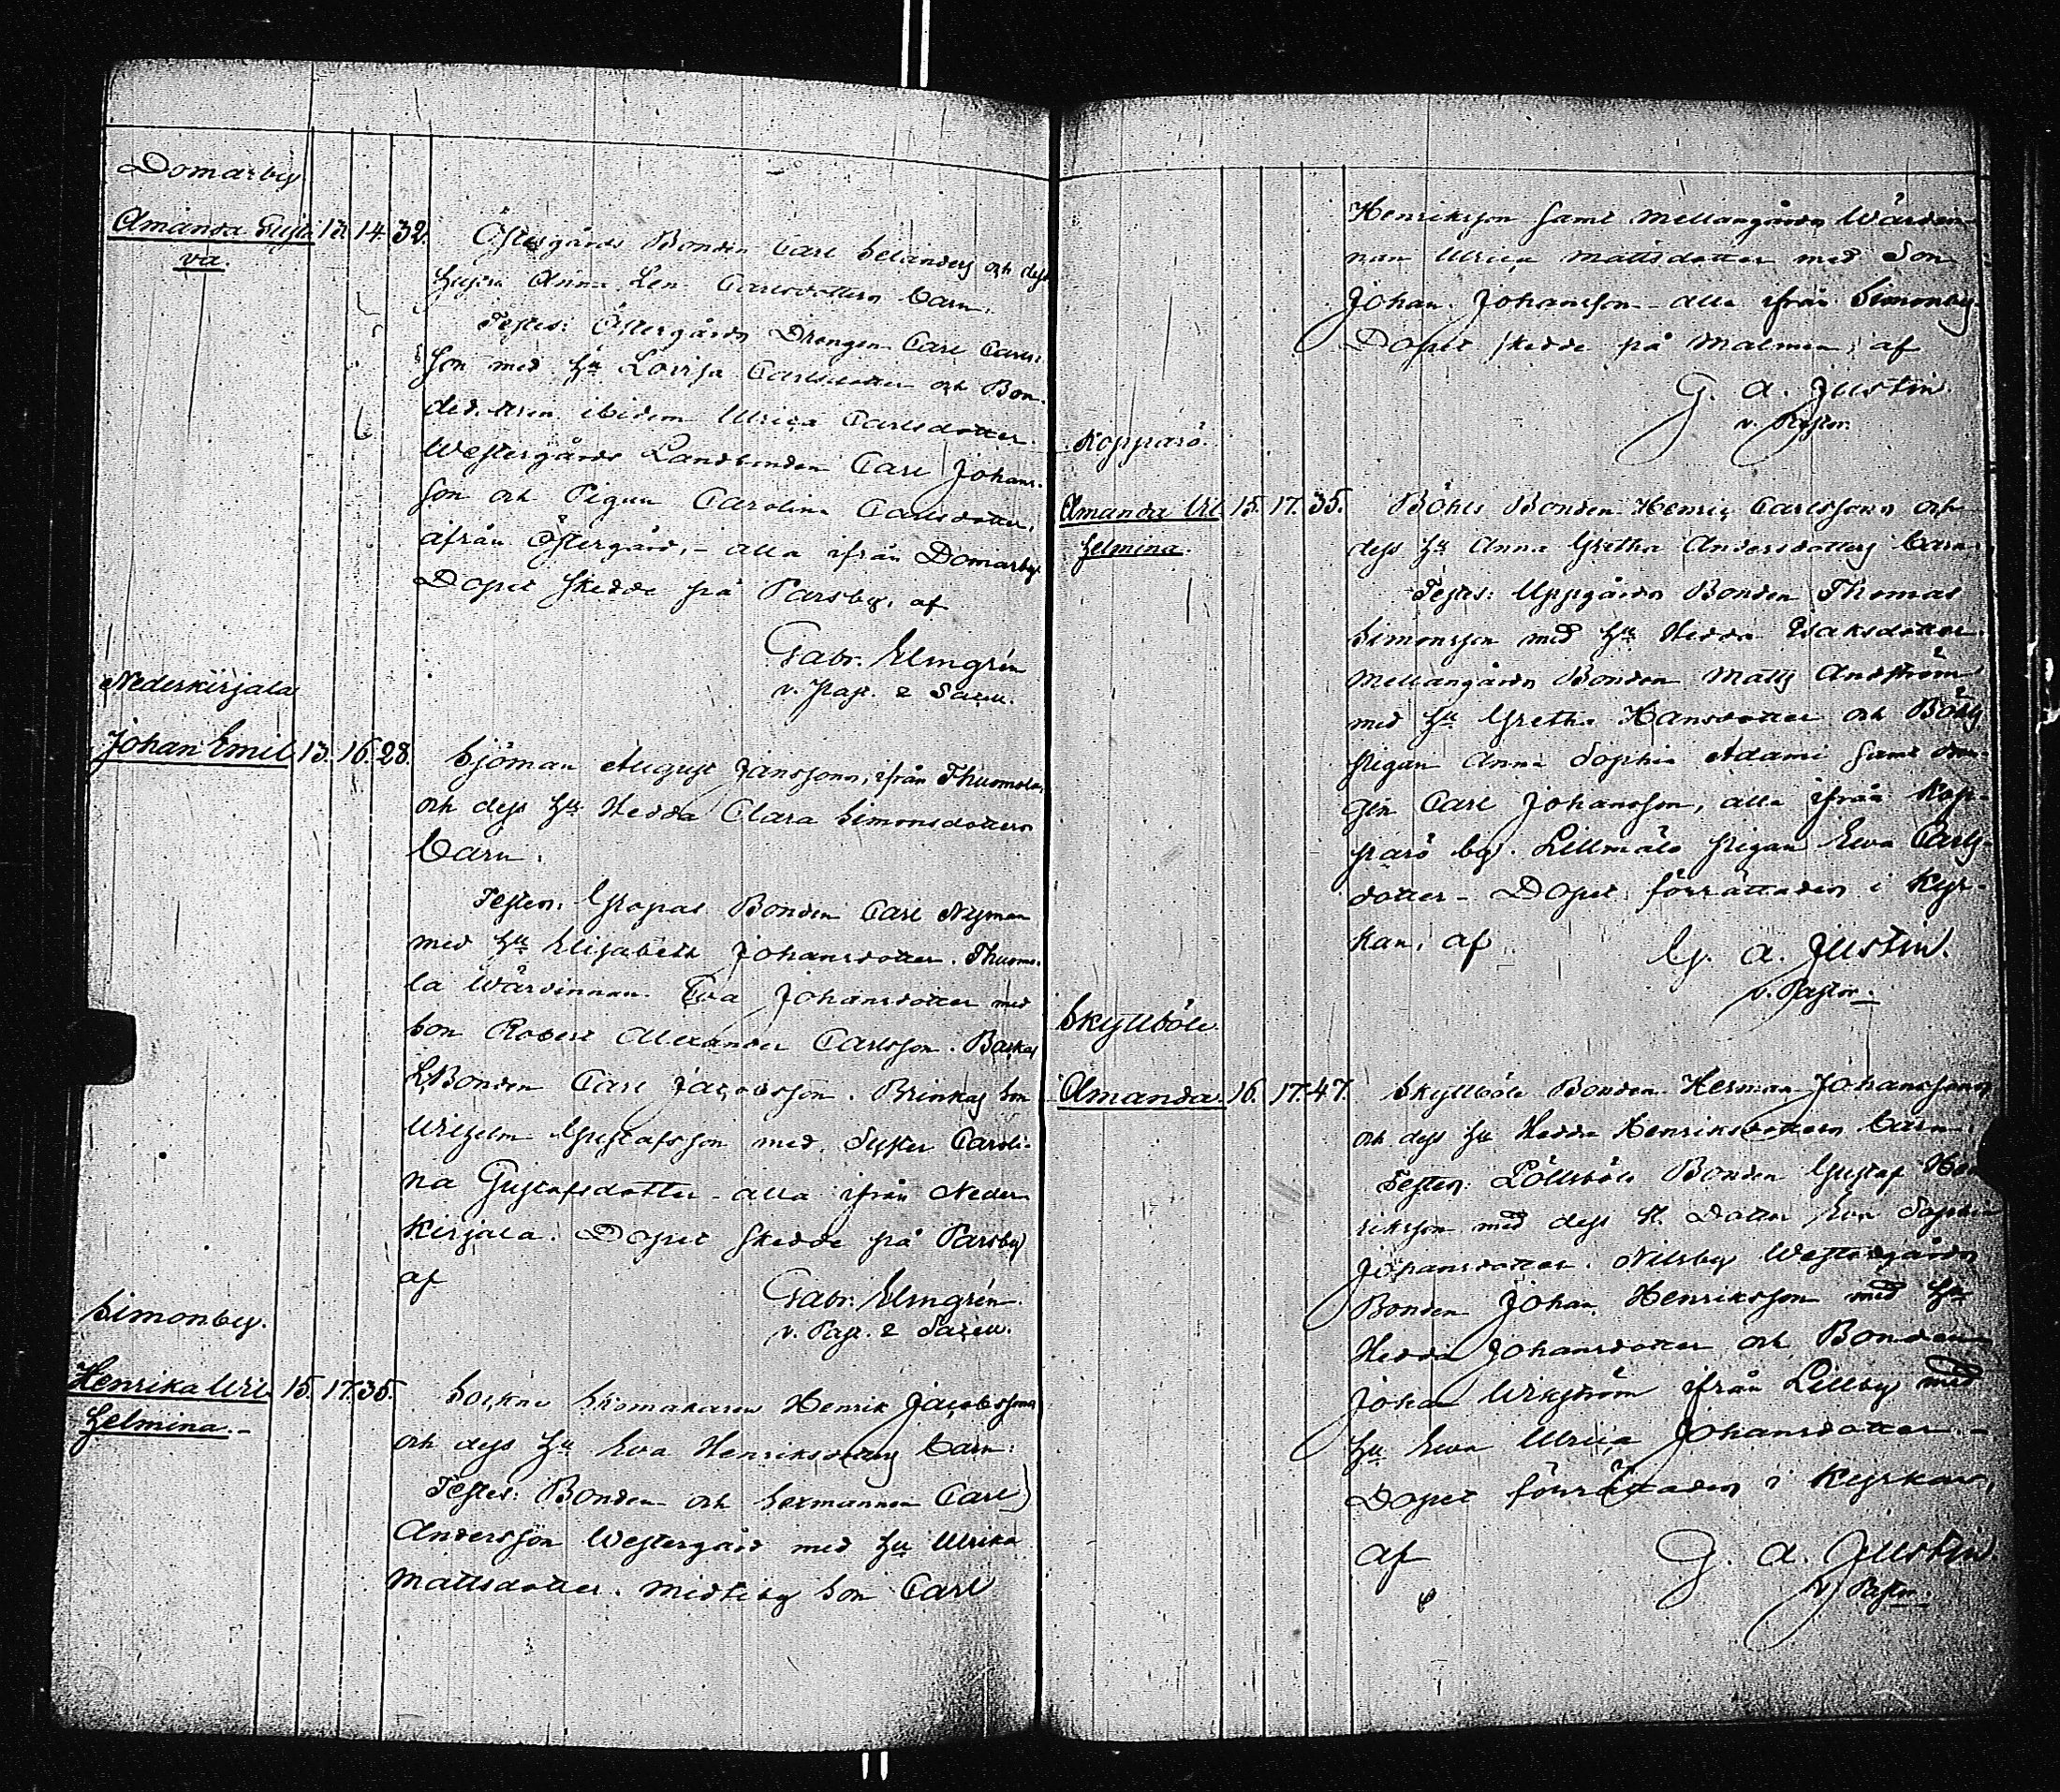 Domarby
Amanda Gusta 12. 14. 32.
va.
Östergårds Bonden Carl Selanders och dess
Hustru Anna Len. Carlsdotters barn.
Testes: Östergårds Drengen Carl Carls-
son med Hu Lovisa Carlsdotter och Bon-
ded. ibidem Ulrica Carlsdotter.
Westergårds Landbonden Carl Johans-
son och Pigan Carolina Carlsdotter,
ifrån Östergård, - alla ifrån Domarby
Dopet skedde på Parsby, af
Gabr. Elmgrén
v. Past. & Sacell.
Nederkirjala
Johan Emil 13. 16. 28.
Sjöman August Janssons, ifrån Thuomola,
och dess Hu Hedda Clara Simonsdotters
barn.
Testes: Gropas Bonden Carl Nyman
med Hu Elisabeth Johansdotter. Thuomo-
la Wärdinnan Eva Johansdotter med
Son Robert Alexander Carlsson. Backas
L.Bonden Carl Jacobsson. Brinkas Son
Wilhelm Gustafsson med Syster Caroli-
na Gustafsdotter - alla ifrån Neder-
kirjala. Dopet skedde på Parsby
af
Gabr. Elmgrén.
v. Past. & Sacell.
Simonby.
Henrika Wil- 15. 17. 35.
helmina. -
Sockne Skomakaren Henrik Jacobssons
och dess Hu Eva Henriksdotters barn:
Testes: Bonden och Sexmannen Carl
Andersson Westergård med Hu Ulrika
Mattsdotter. Midteby Son Carl
Henriksson samt Mellangårds Wärdin-
nan Ulrica Mattsdotter med Son
Johan Johansson - alla ifrån Simonby
Dopet skedde på Malmen, af
G. A. Justin
v. Pastor.
Kopparö.
Amanda Wil- 15. 17. 35.
helmina.
Böhls Bonden Henric Carlssons och
dess Hu Anna Gretha Andersdotters barn.
Testes: Uppgårds Bonden Thomas
Simonsson med Hu Hedda Isaksdotter.
Mellangårds Bonden Matts Andström
med Hu Gretha Hansdotter och Böhls
pigan Anna Sophia Adami samt drän-
gen Carl Johansson, alla ifrån Kop-
parö by. Lillmälö pigan Eva Carls-
dotter - Dopet förrättades i Kyr-
kan, af
G. A. Justin.
v. Pastor.
Skyllböle
Amanda. 16. 17. 47.
Skyllböle Bonden Herman Johanssons
och dess Hu Hedda Henriksdotters barn.
Testes: Löllböle Bonden Gustaf Hen-
riksson med dess St. Dotter Eva Sophia
Johansdotter. Nilsby Westergårds
Bonden Johan Henriksson med Hu
Hedda Johansdotter och Bonden
Johan Wikström ifrån Lillby med
Hu Eva Ulrica Johansdotter. -
Dopet förrättades i Kyrkan,
af
G. A. Justin.
v. Pastor.